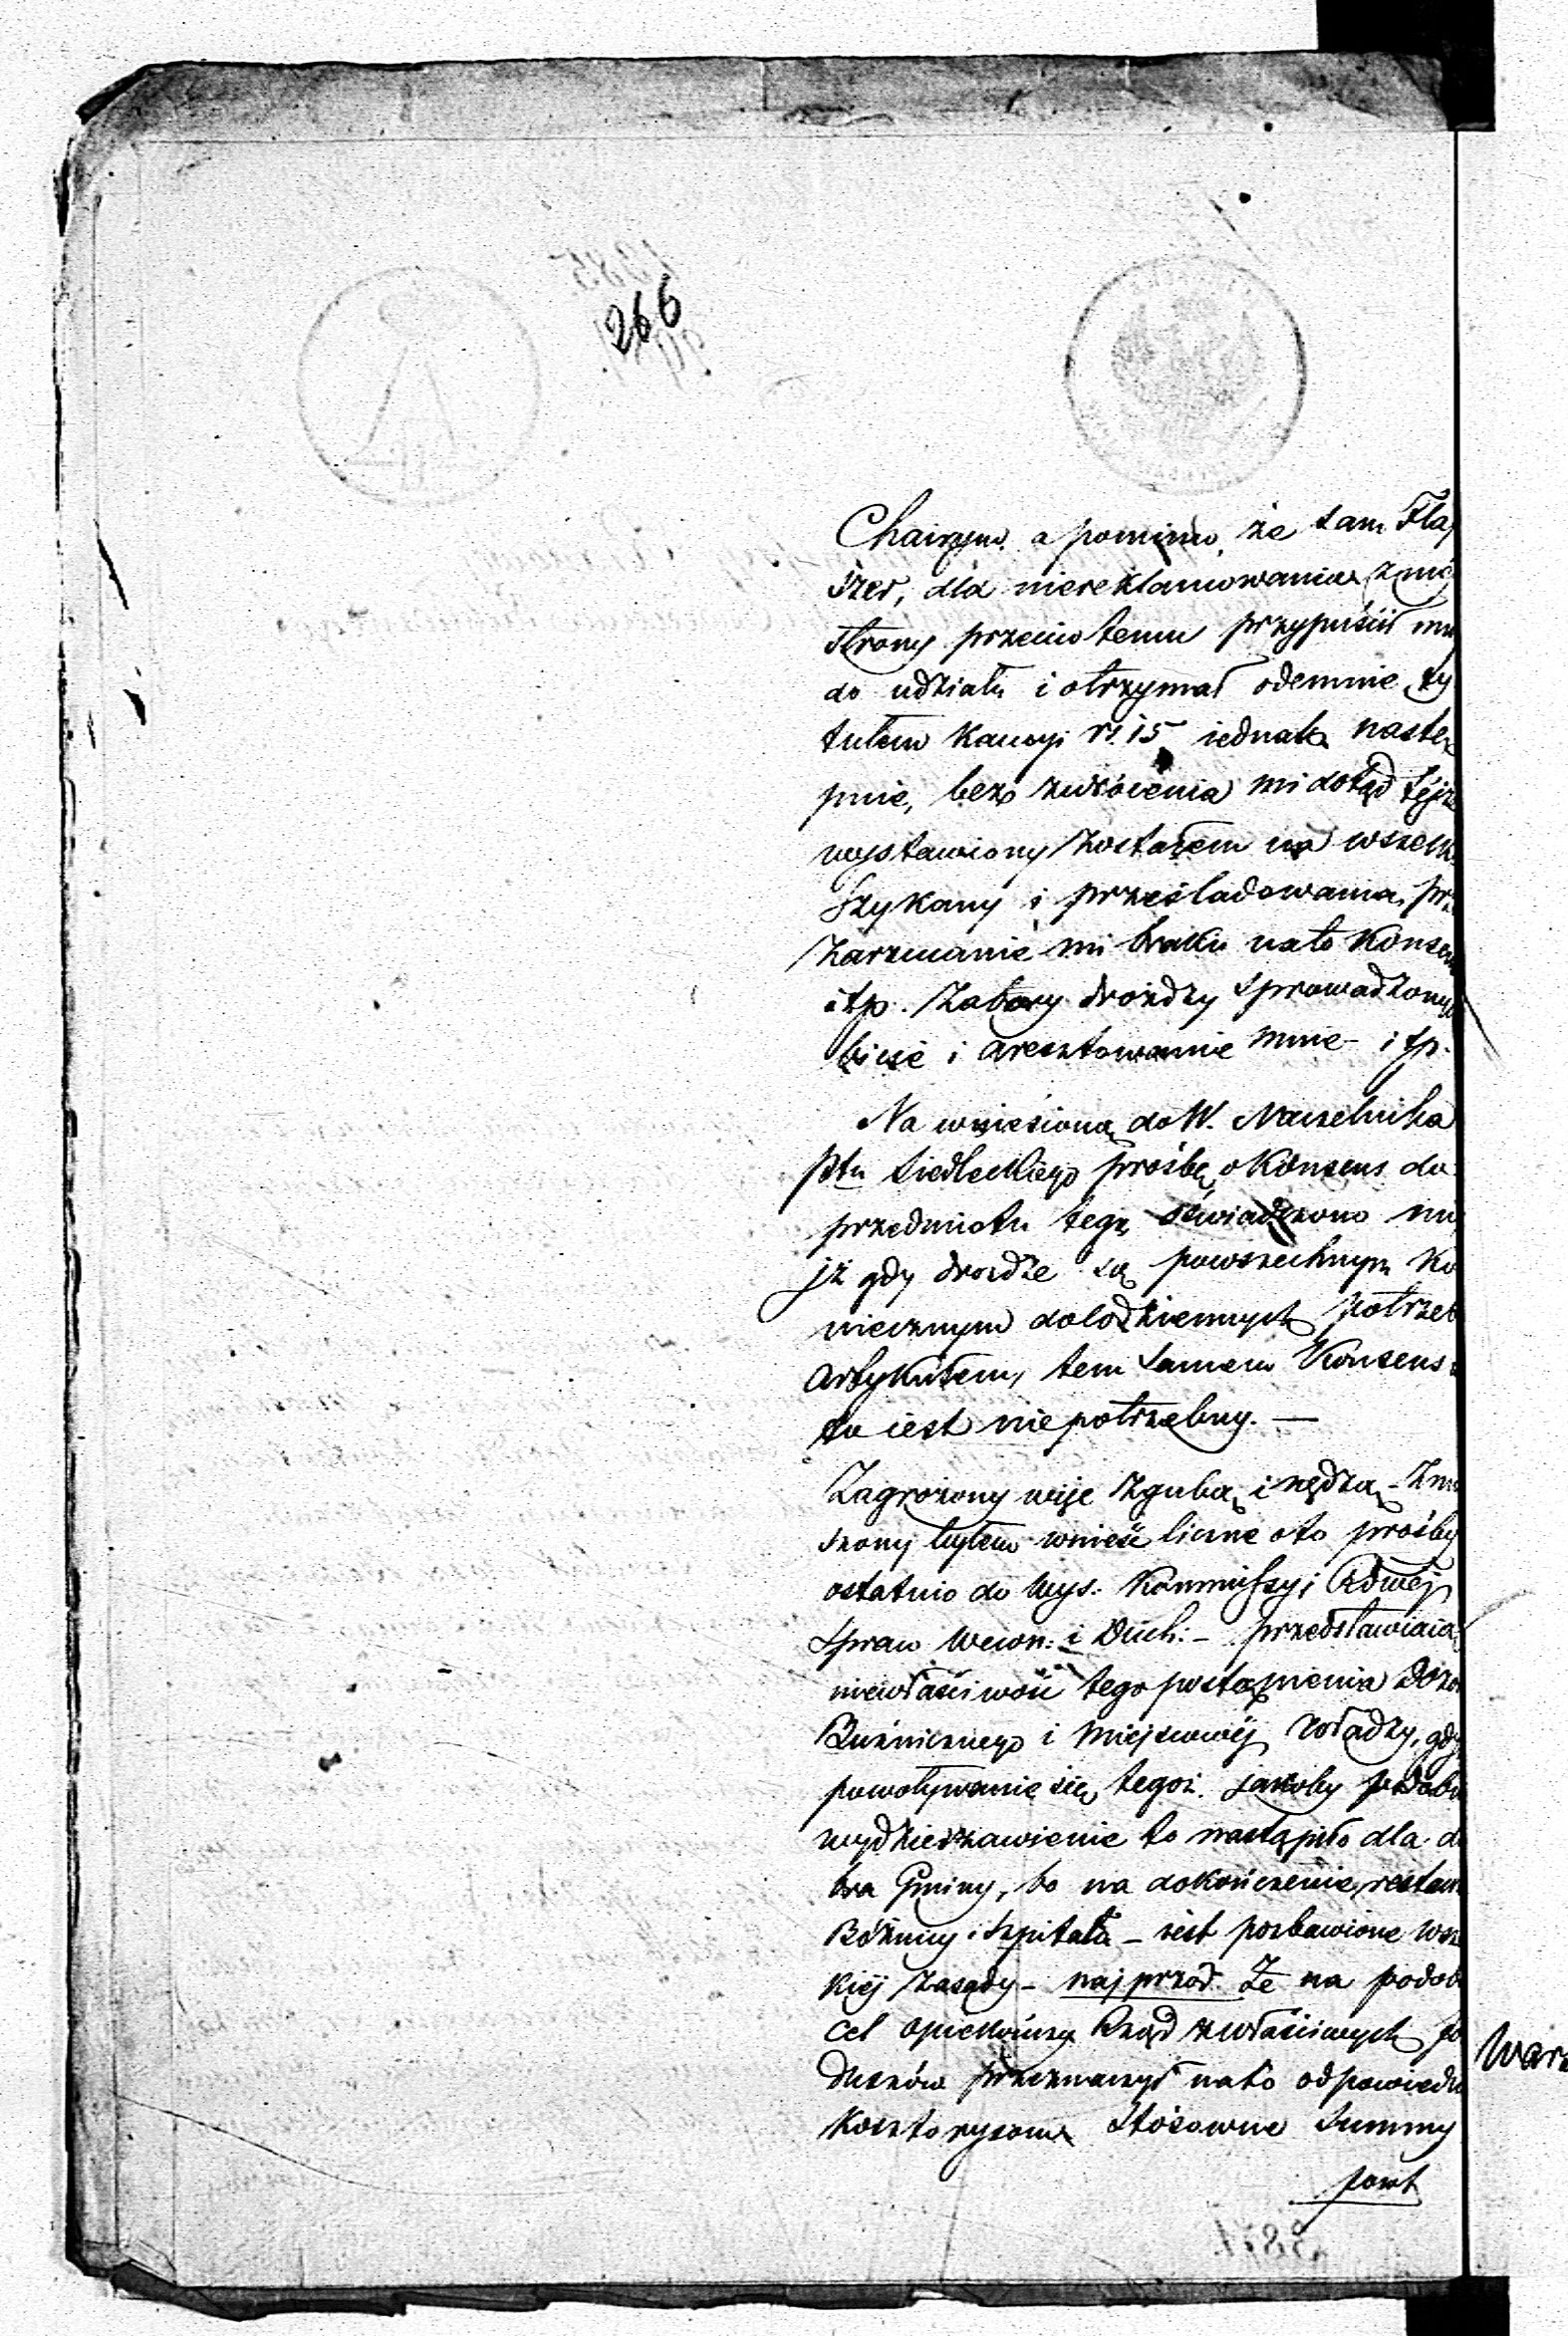 266
Chaimzym. a pomimo, że sam Flaj
szer, dla niereklamowania z mej
strony przeciw temu przypuścił mn
do udziału i otrzymał odemnie ty
tułem Kaucyi rs. 15 iednak nastę
pnie, bez zwrócenia mi dotąd téjż
wystawiony zostałem na wszelk
Szykany i prześladowania, prz
Zarzucanie mi braku na to Konsen
itp. Zabory drożdży sprowadzonyc
bicie i aresztowanie mnie - itp.
Na wniesioną do W. Naczelnika
Ptu Siedleckiego prośbę o Konsens do
przedmiotu tego, oświadczono mi
iż gdy drożdże są powszechnym Ko
niecznym do codziennych potrzeb
Artykułem, tem samem Konsens
to iest niepotrzebny. —
Zagrożony więc zgubą i nędzą - Zmu
szony byłem wnieść liczne o to prośby
ostatnio do Wys. Kommissyi Rdowéj
Spraw Wewn: i Duch: - przedstawiaią
niewłaściwość tego postąpienia Dozo
Bużnicznego i Miejscowéj władzy, gdy
powoływanie się tegoż. jakoby podob
wydzierżawienie to nastąpiło dla do
bra Gminy, bo na dokończenie restau
Bóżnicy i Szpitala - iest pozbawione wsze
kiéj zasady - najprzód. Że na podob
cel opiekuńczy Rząd z właściwych fu
duszów przeznaczył na to odpowiedn
Kosztorysom Stosowne Summy
powt
Wars